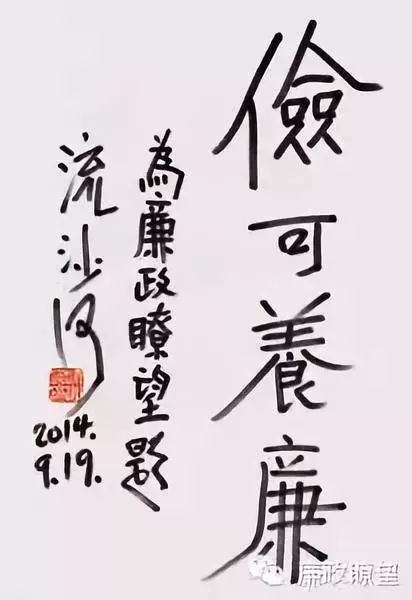 儉可養廉
為廉政瞭望題
流沙河
2014.
9.19.
廉政瞭望